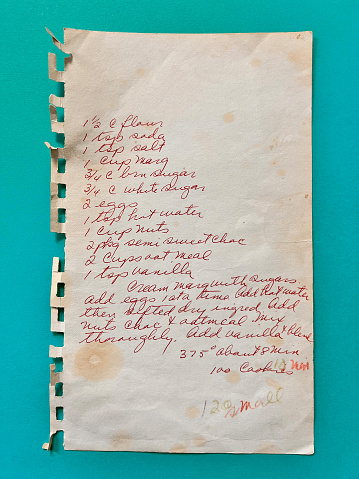 1 1/2 c flour
1 tsp soda
1 tsp salt
1 cup marg
3/4 c brn sugar
3/4 c white sugar
2 eggs
1 tsp hot water
1 cup nuts
2 pkg semi sweet choc
2 cups oat meal
1 tsp vanilla
Cream marg with sugars
add eggs 1 at a time Add hot water
then sifted dry ingred. Add
nuts choc & oatmeal mix
thoroughly. Add vanilla & blend
375° about 8 min
100 Cookies 10 min
120 small